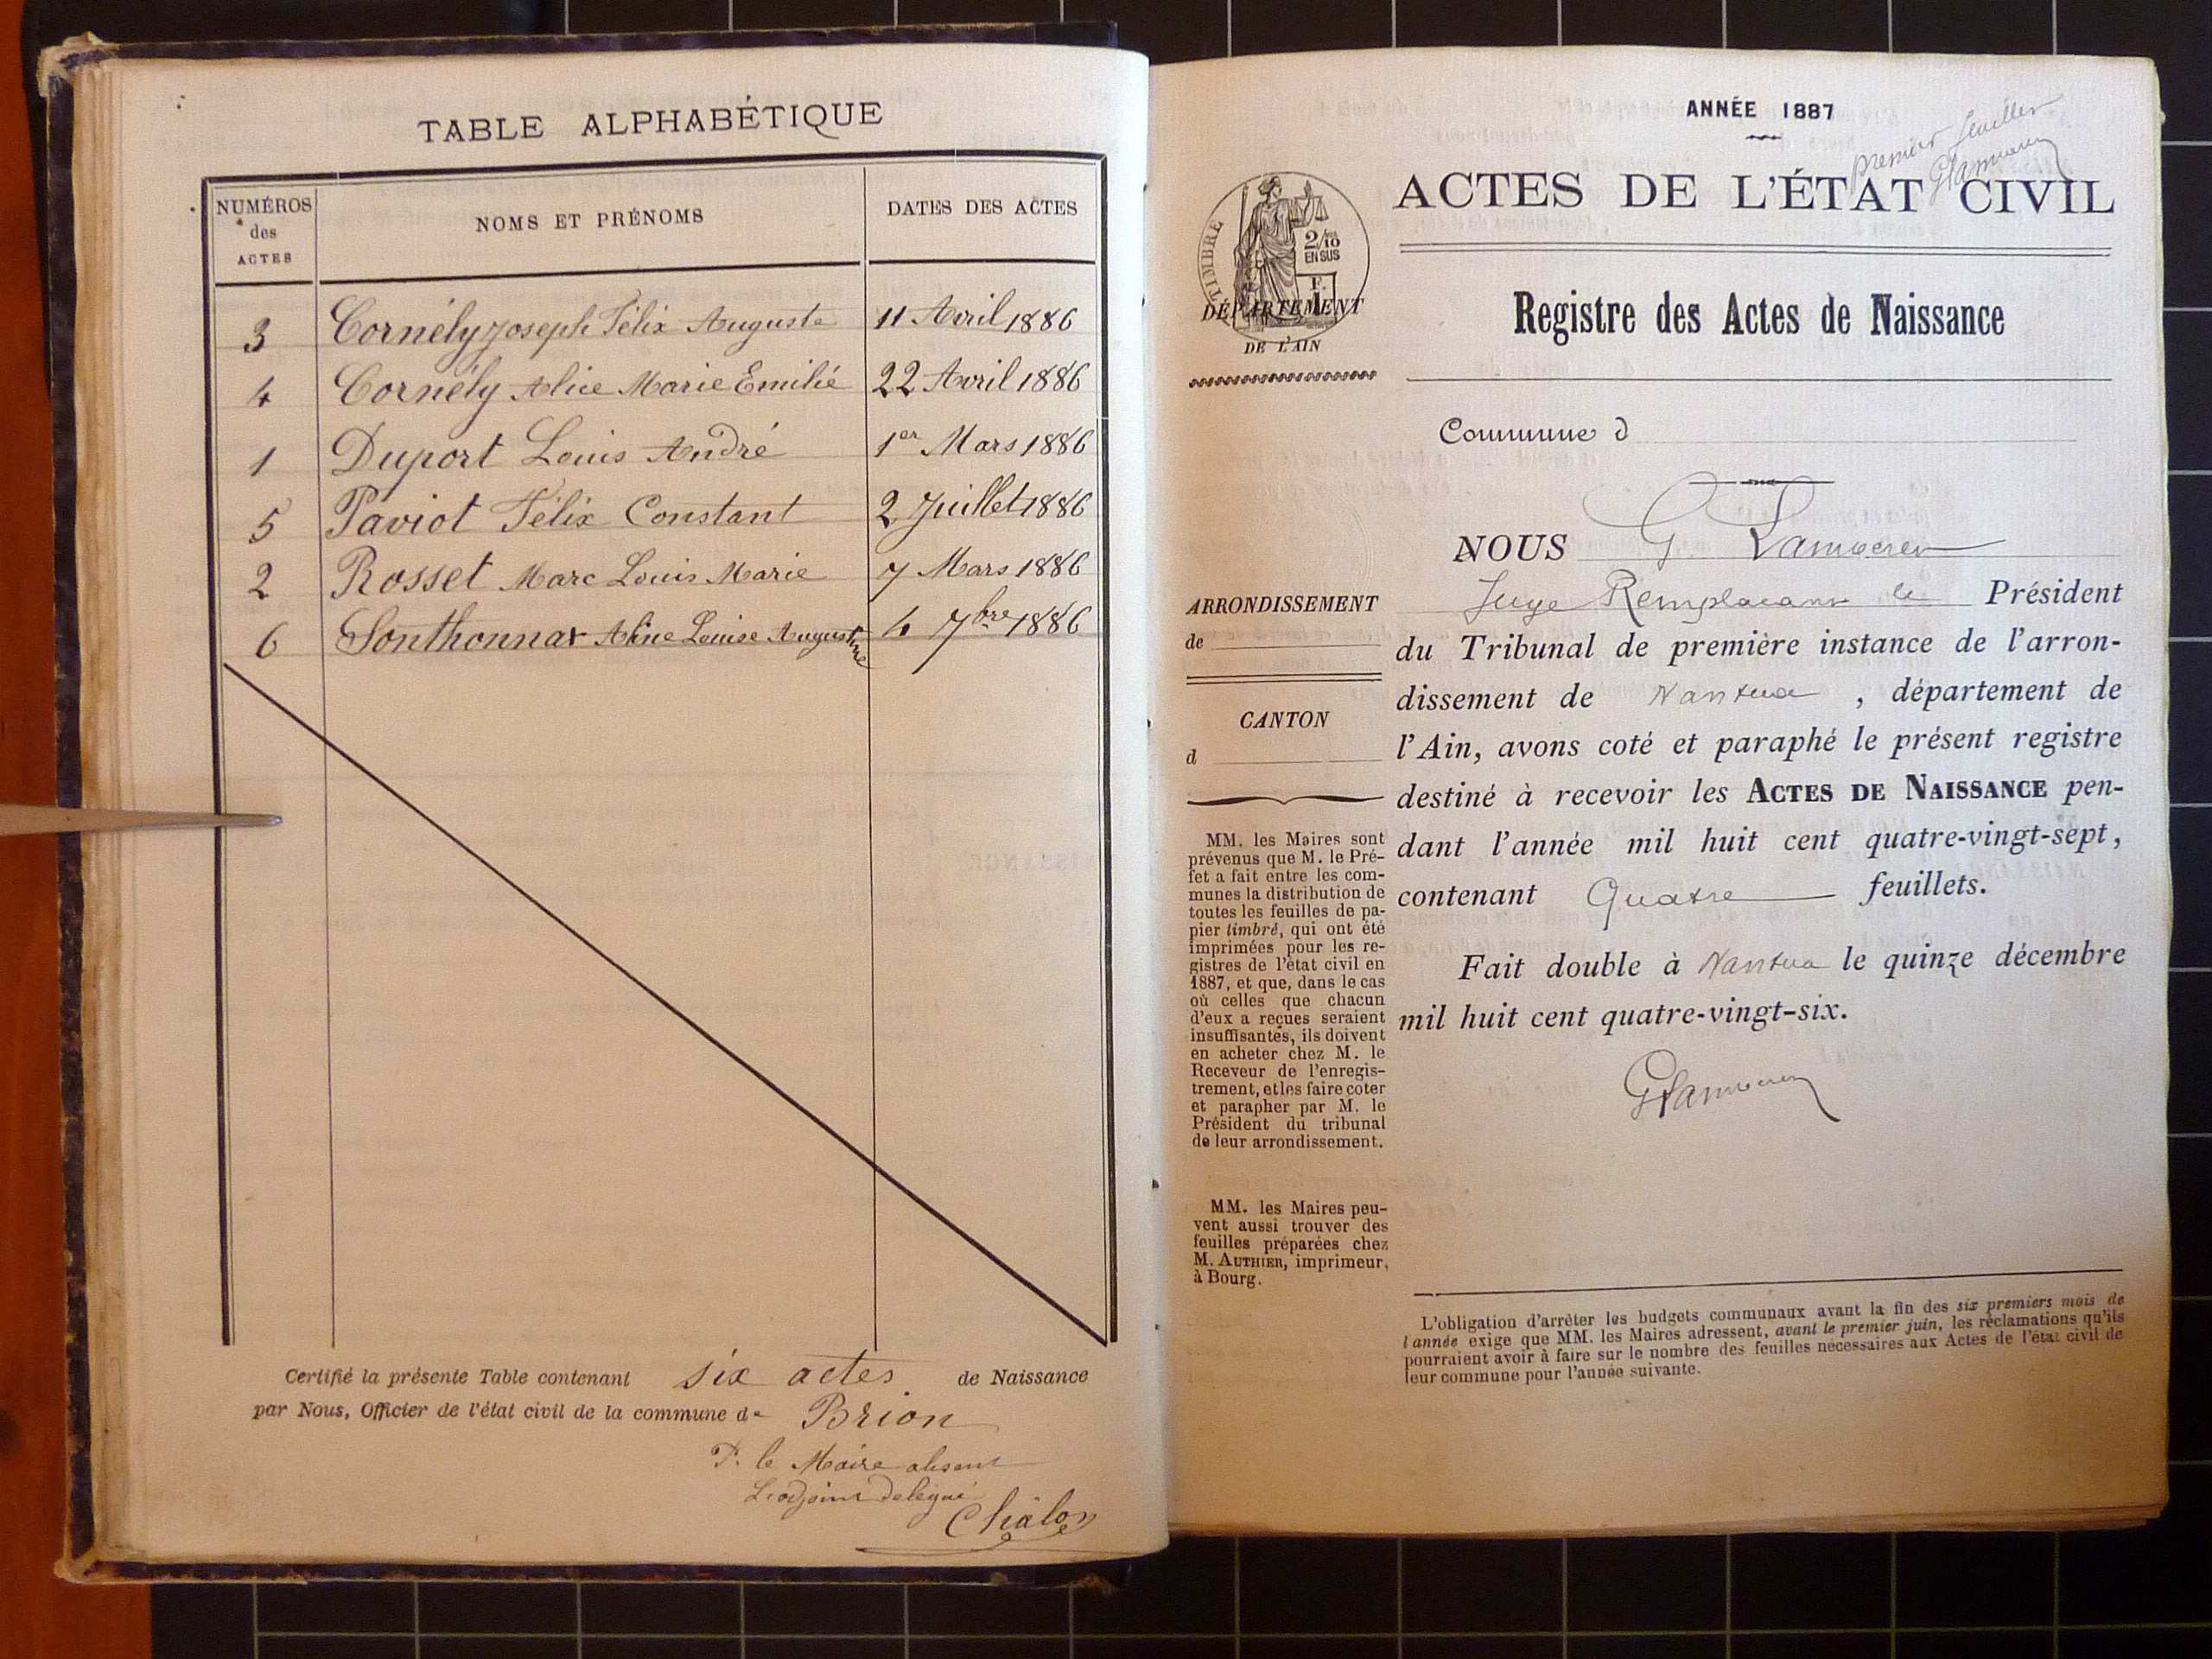 TABLE ALPHABÉTIQUE
NUMÉROS
des
ACTES
NOMS ET PRÉNOMS
DATES DES ACTES
3 Cornély Joseph Félix Auguste 11 Avril 1886
4 Cornély Alice Marie Emilie 22 Avril 1886
1 Duport Louis André 1er Mars 1886
5 Paviot Félix Constant 2 Juillet 1886
2 Rosset Marc Louis Marie 7 Mars 1886
6 Sonthonnax Aline Louise Augustine 4 7bre 1886
Certifié la présente Table contenant six actes de Naissance
par Nous, Officier de l'état civil de la commune de Brion
P. le Maire absent
L'adjoint délégué
Chalon
ANNÉE 1887
premier feuillet
ACTES DE L'ÉTAT CIVIL
TIMBRE
2/10
EN SUS
F.
1
DÉPARTEMENT
DE L'AIN
Registre des Actes de Naissance
Commune d
NOUS G
Juge Remplaçant le Président
du Tribunal de première instance de l'arron-
dissement de Nantua, département de
l'Ain, avons coté et paraphé le présent registre
destiné à recevoir les ACTES DE NAISSANCE pen-
dant l'année mil huit cent quatre-vingt-sept,
contenant Quatre feuillets.
Fait double à Nantua le quinze décembre
mil huit cent quatre-vingt-six.
ARRONDISSEMENT
de
CANTON
d
MM. les Maires sont
prévenus que M. le Pré-
fet a fait entre les com-
munes la distribution de
toutes les feuilles de pa-
pier timbré, qui ont été
imprimées pour les re-
gistres de l'état civil en
1887, et que, dans le cas
où celles que chacun
d'eux a reçues seraient
insuffisantes, ils doivent
en acheter chez M. le
Receveur de l'enregis-
trement, et les faire coter
et parapher par M. le
Président du tribunal
de leur arrondissement.
MM. les Maires peu-
vent aussi trouver des
feuilles préparées chez
M. AUTHIER, imprimeur,
à Bourg.
L'obligation d'arrêter les budgets communaux avant la fin des six premiers mois de
l'année exige que MM. les Maires adressent, avant le premier juin, les réclamations qu'ils
pourraient avoir à faire sur le nombre des feuilles nécessaires aux Actes de l'état civil de
leur commune pour l'année suivante.